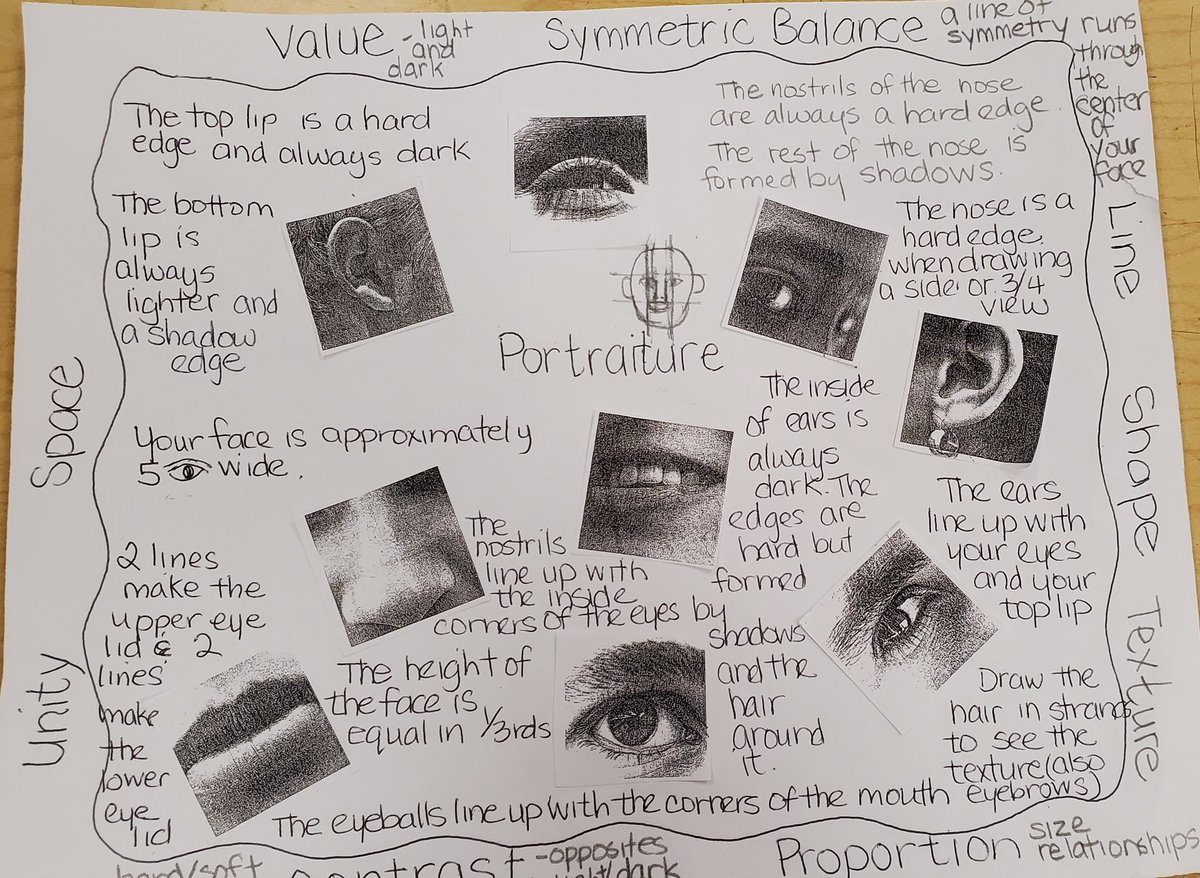 Value - light
and
dark
Symmetric Balance
a line of
symmetry runs
through
the
center
of
your
face
The top lip is a hard
edge and always dark
The nostrils of the nose
are always a hard edge.
The rest of the nose is
formed by shadows.
The bottom
lip is
always
lighter and
a shadow
edge
The nose is a
hard edge,
when drawing
a side or 3/4
view
Line
Shape
Texture
Space
Unity
Portraiture
Your face is approximately
5 wide.
The inside
of ears is
always
dark. The
edges are
hard but
formed
by
shadows
and the
hair
around
it.
The ears
line up with
your eyes
and your
top lip
The
nostrils
line up with
the inside
corners of the eyes
2 lines
make the
upper eye
lid & 2
lines
make
the
lower
eye
lid
The height of
the face is
equal in 1/3rds
Draw the
hair in strands
to see the
texture (also
eyebrows)
The eyeballs line up with the corners of the mouth
hard/soft
contrast - opposites
light/dark
Proportion size
relationships